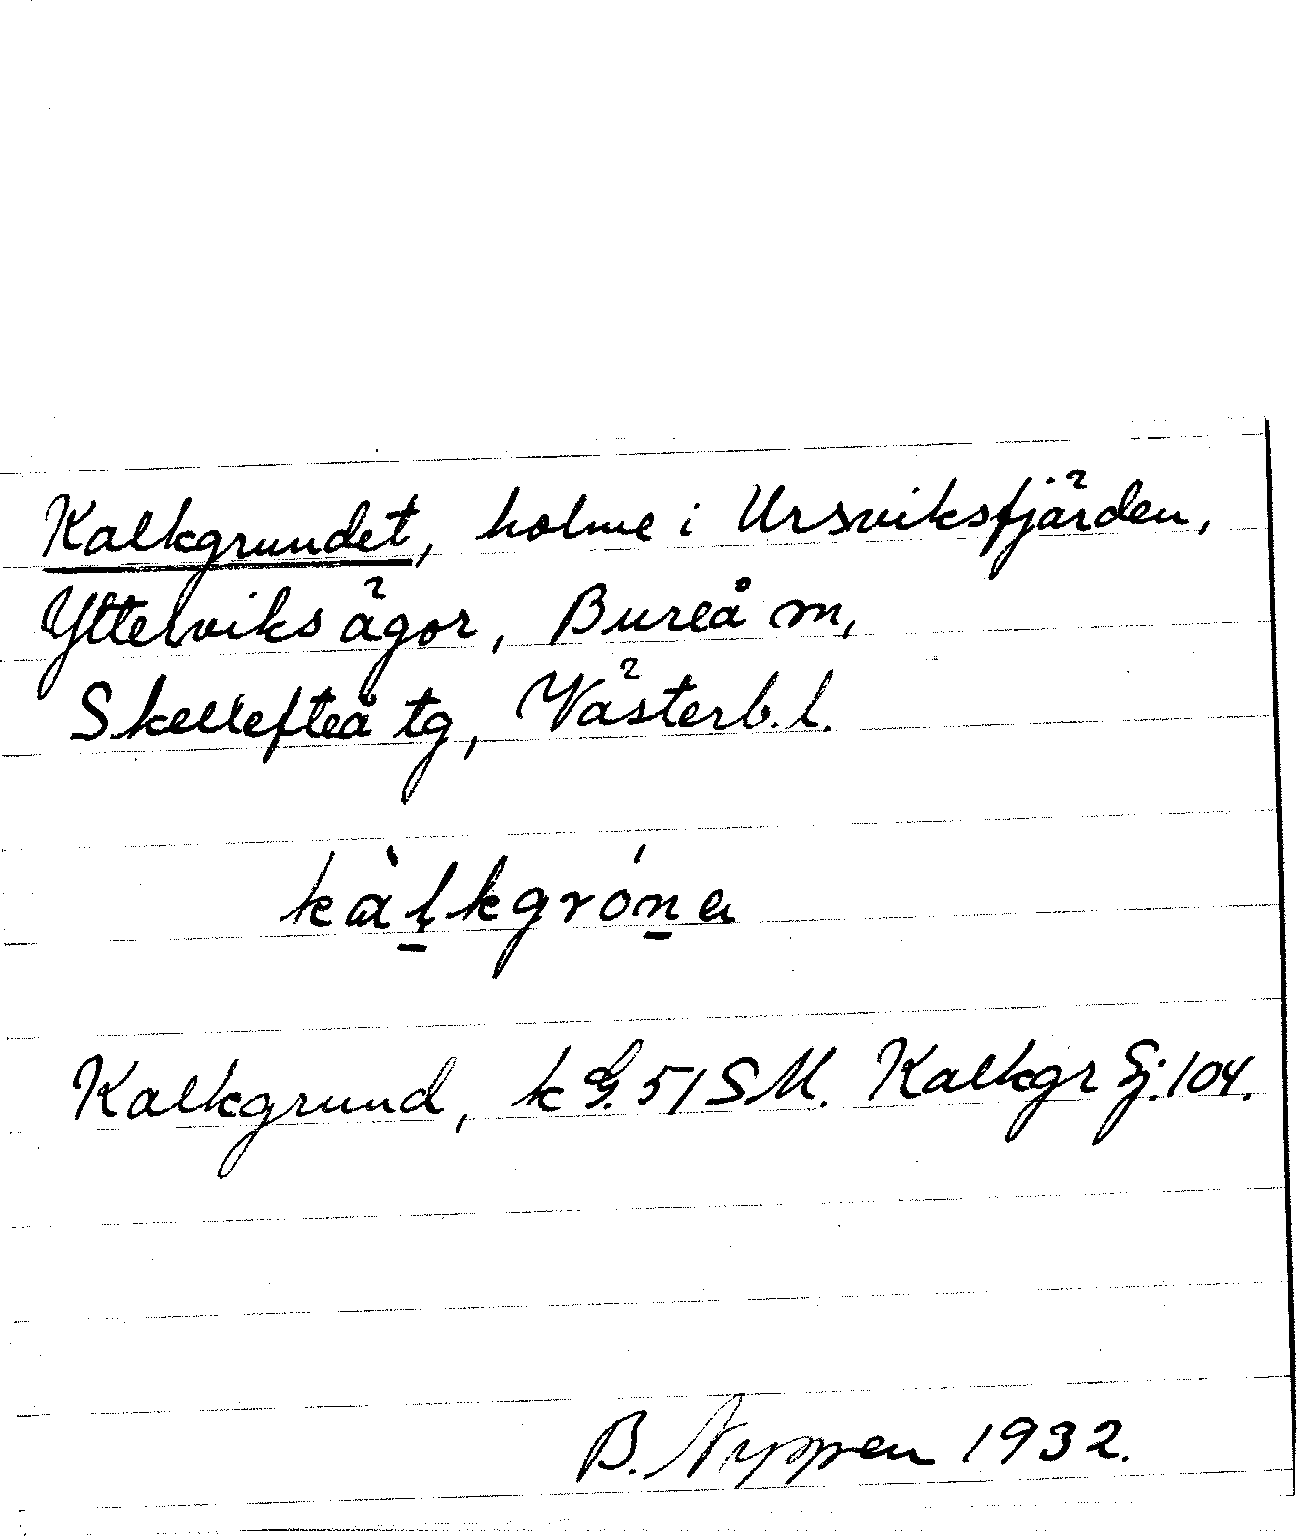 Kalkgrundet, holme i Ursviksfjärden,
Ytterviks ägor, Bureå m,
Skellefteå tg, Västerb. l.
kàl̲kgrón̲a
Kalkgrund, k G. 51 SM. Kalkgr Sj. 104.
B. Nyppen 1932.